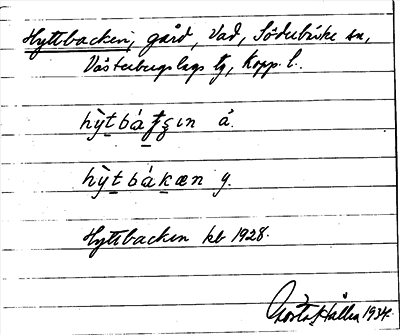 Hyttbacken, gård, Vad, Söderbärke sn,
Västerbergslags tg, Kopp. l.
hỳt bá ꞓɩn å.
hỳt bákæn y.
Hyttbacken kb 1928.
Gösta Hallen 1934.